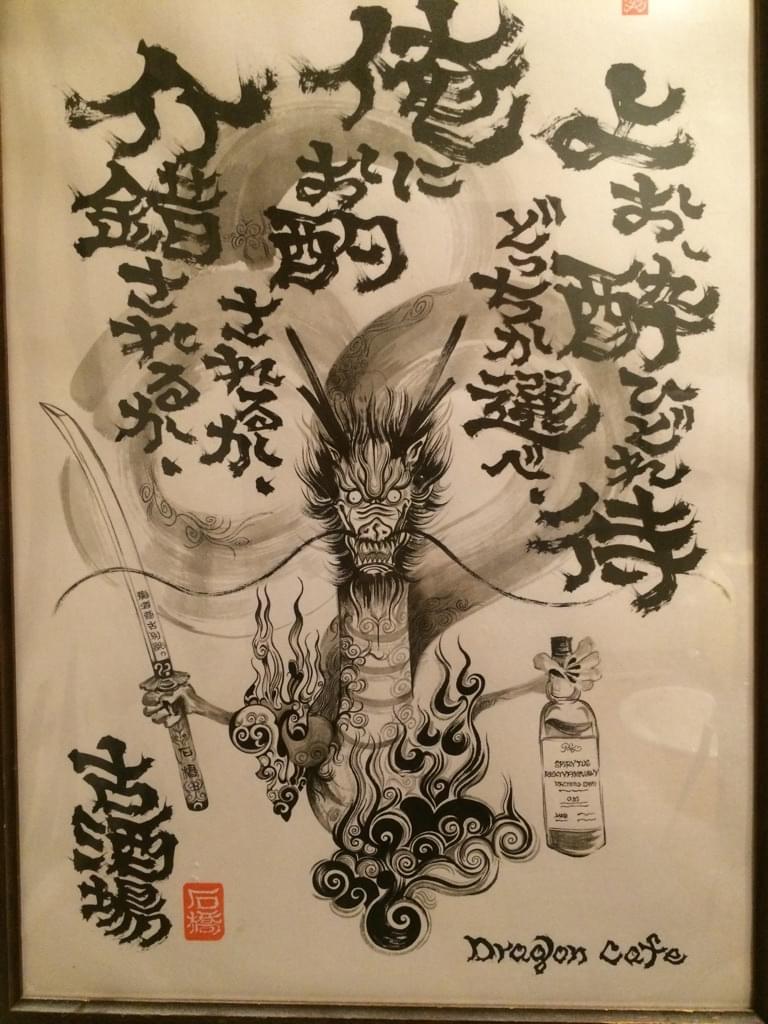 よお、酔ひどれ侍
どっちか選べ、
俺にお酌されるか、
介錯されるか、
古酒場
石橋
SPIRYTUS
REKTYFIKOWANY
Dragon Cafe